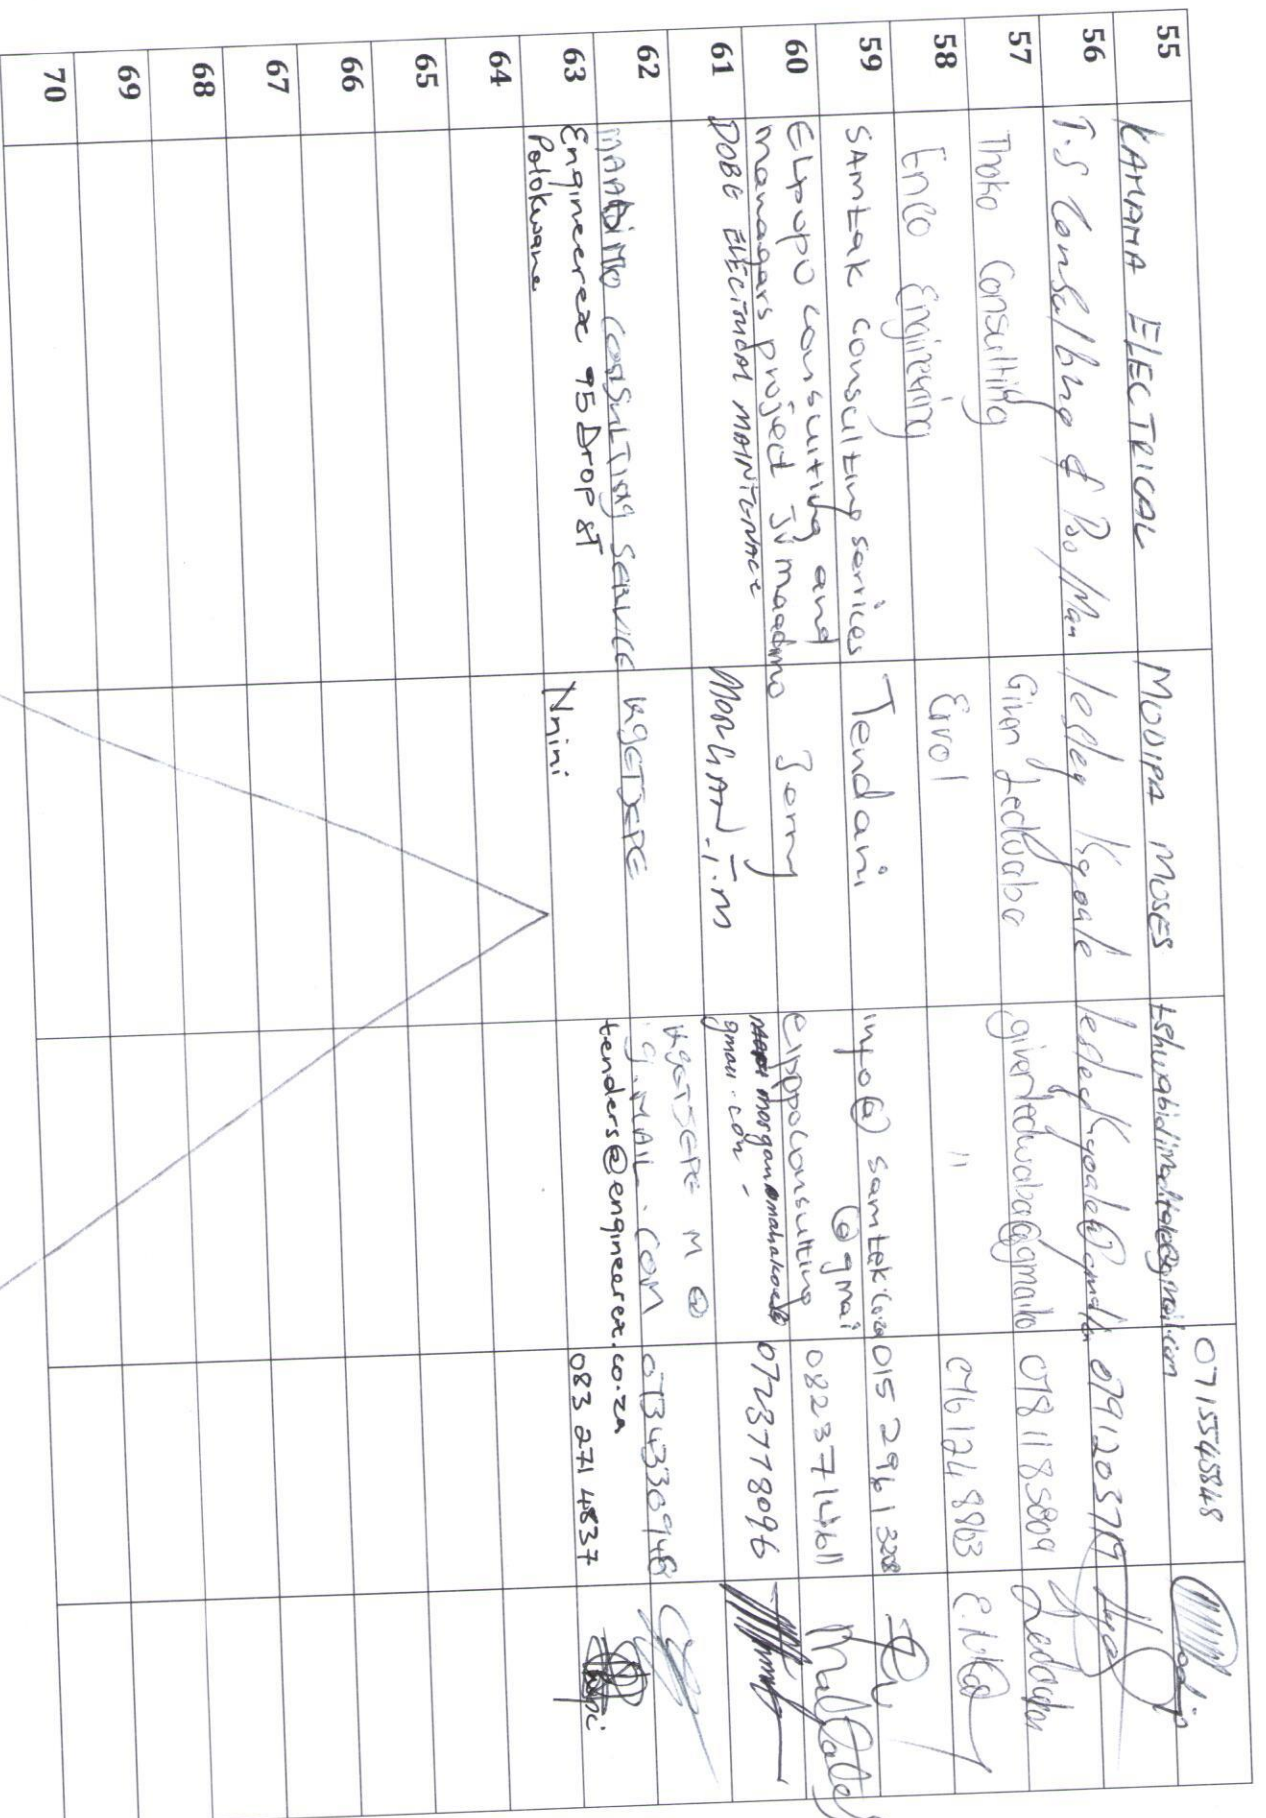 55 KAMAHA ELECTRICAL MODIPA MOSES 0715545848
56 T.S Consulting & Pro/Man Lesley Kgoale
57 Thoko Consulting Given Ledwaba givenledwaba@gmailco 0781185809
58 Enco Engineering Errol " 0761248863
59 SAMtak consulting services Tendani info@samtek.co.za 015 2961328
60 Elpopo consulting and
managars project JV maadimo Jerry elppopoconsulting
@gmai 0823714611
61 DOBE ELECTRICAL MAINTENACE MORGAN .T.M
gmail.com 0723778096
62 MAADIMO CONSULTING SERVICE KGETSEPE KGETSEPE M @
g.MAIL.COM 0734330948
63 Engineerex 95 Drop ST
Polokwane Nnini tenders@engineerex.co.za 083 271 4837
64
65
66
67
68
69
70